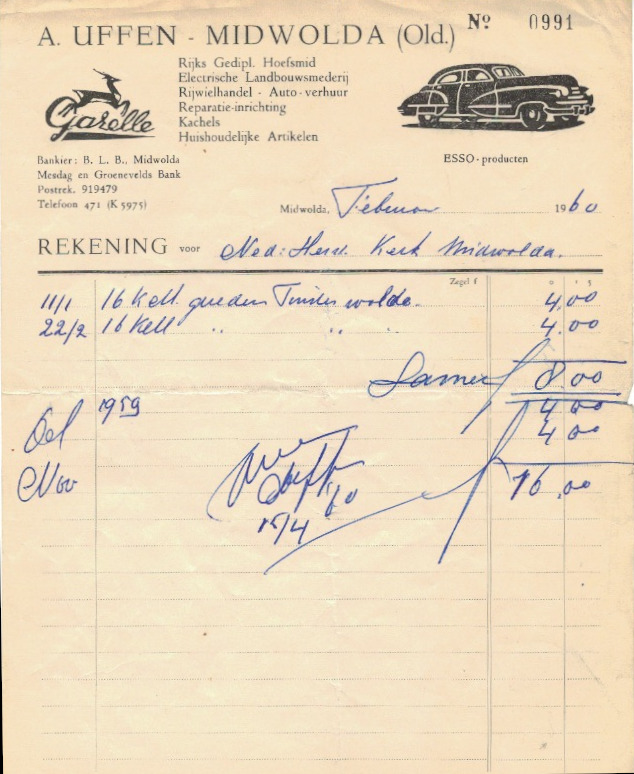 A. UFFEN - MIDWOLDA (Old.)
Nº 0991
Rijks Gedipl. Hoefsmid
Electrische Landbouwsmederij
Rijwielhandel - Auto-verhuur
Reparatie-inrichting
Kachels
Huishoudelijke Artikelen
Gazelle
ESSO-producten
Bankier: B. L. B., Midwolda
Mesdag en Groenevelds Bank
Postrek. 919479
Telefoon 471 (K 5975)
Midwolda, Februari 1960
REKENING voor Ned: Herv. Kerk Midwolda.
Zegel f
11/1 16 Kell. 4,00
22/2 16 Kell " " " 4.00
Samen f 8.00
1959
Oct 4.00
Nov 4 00
f 16.00
15/4 '60